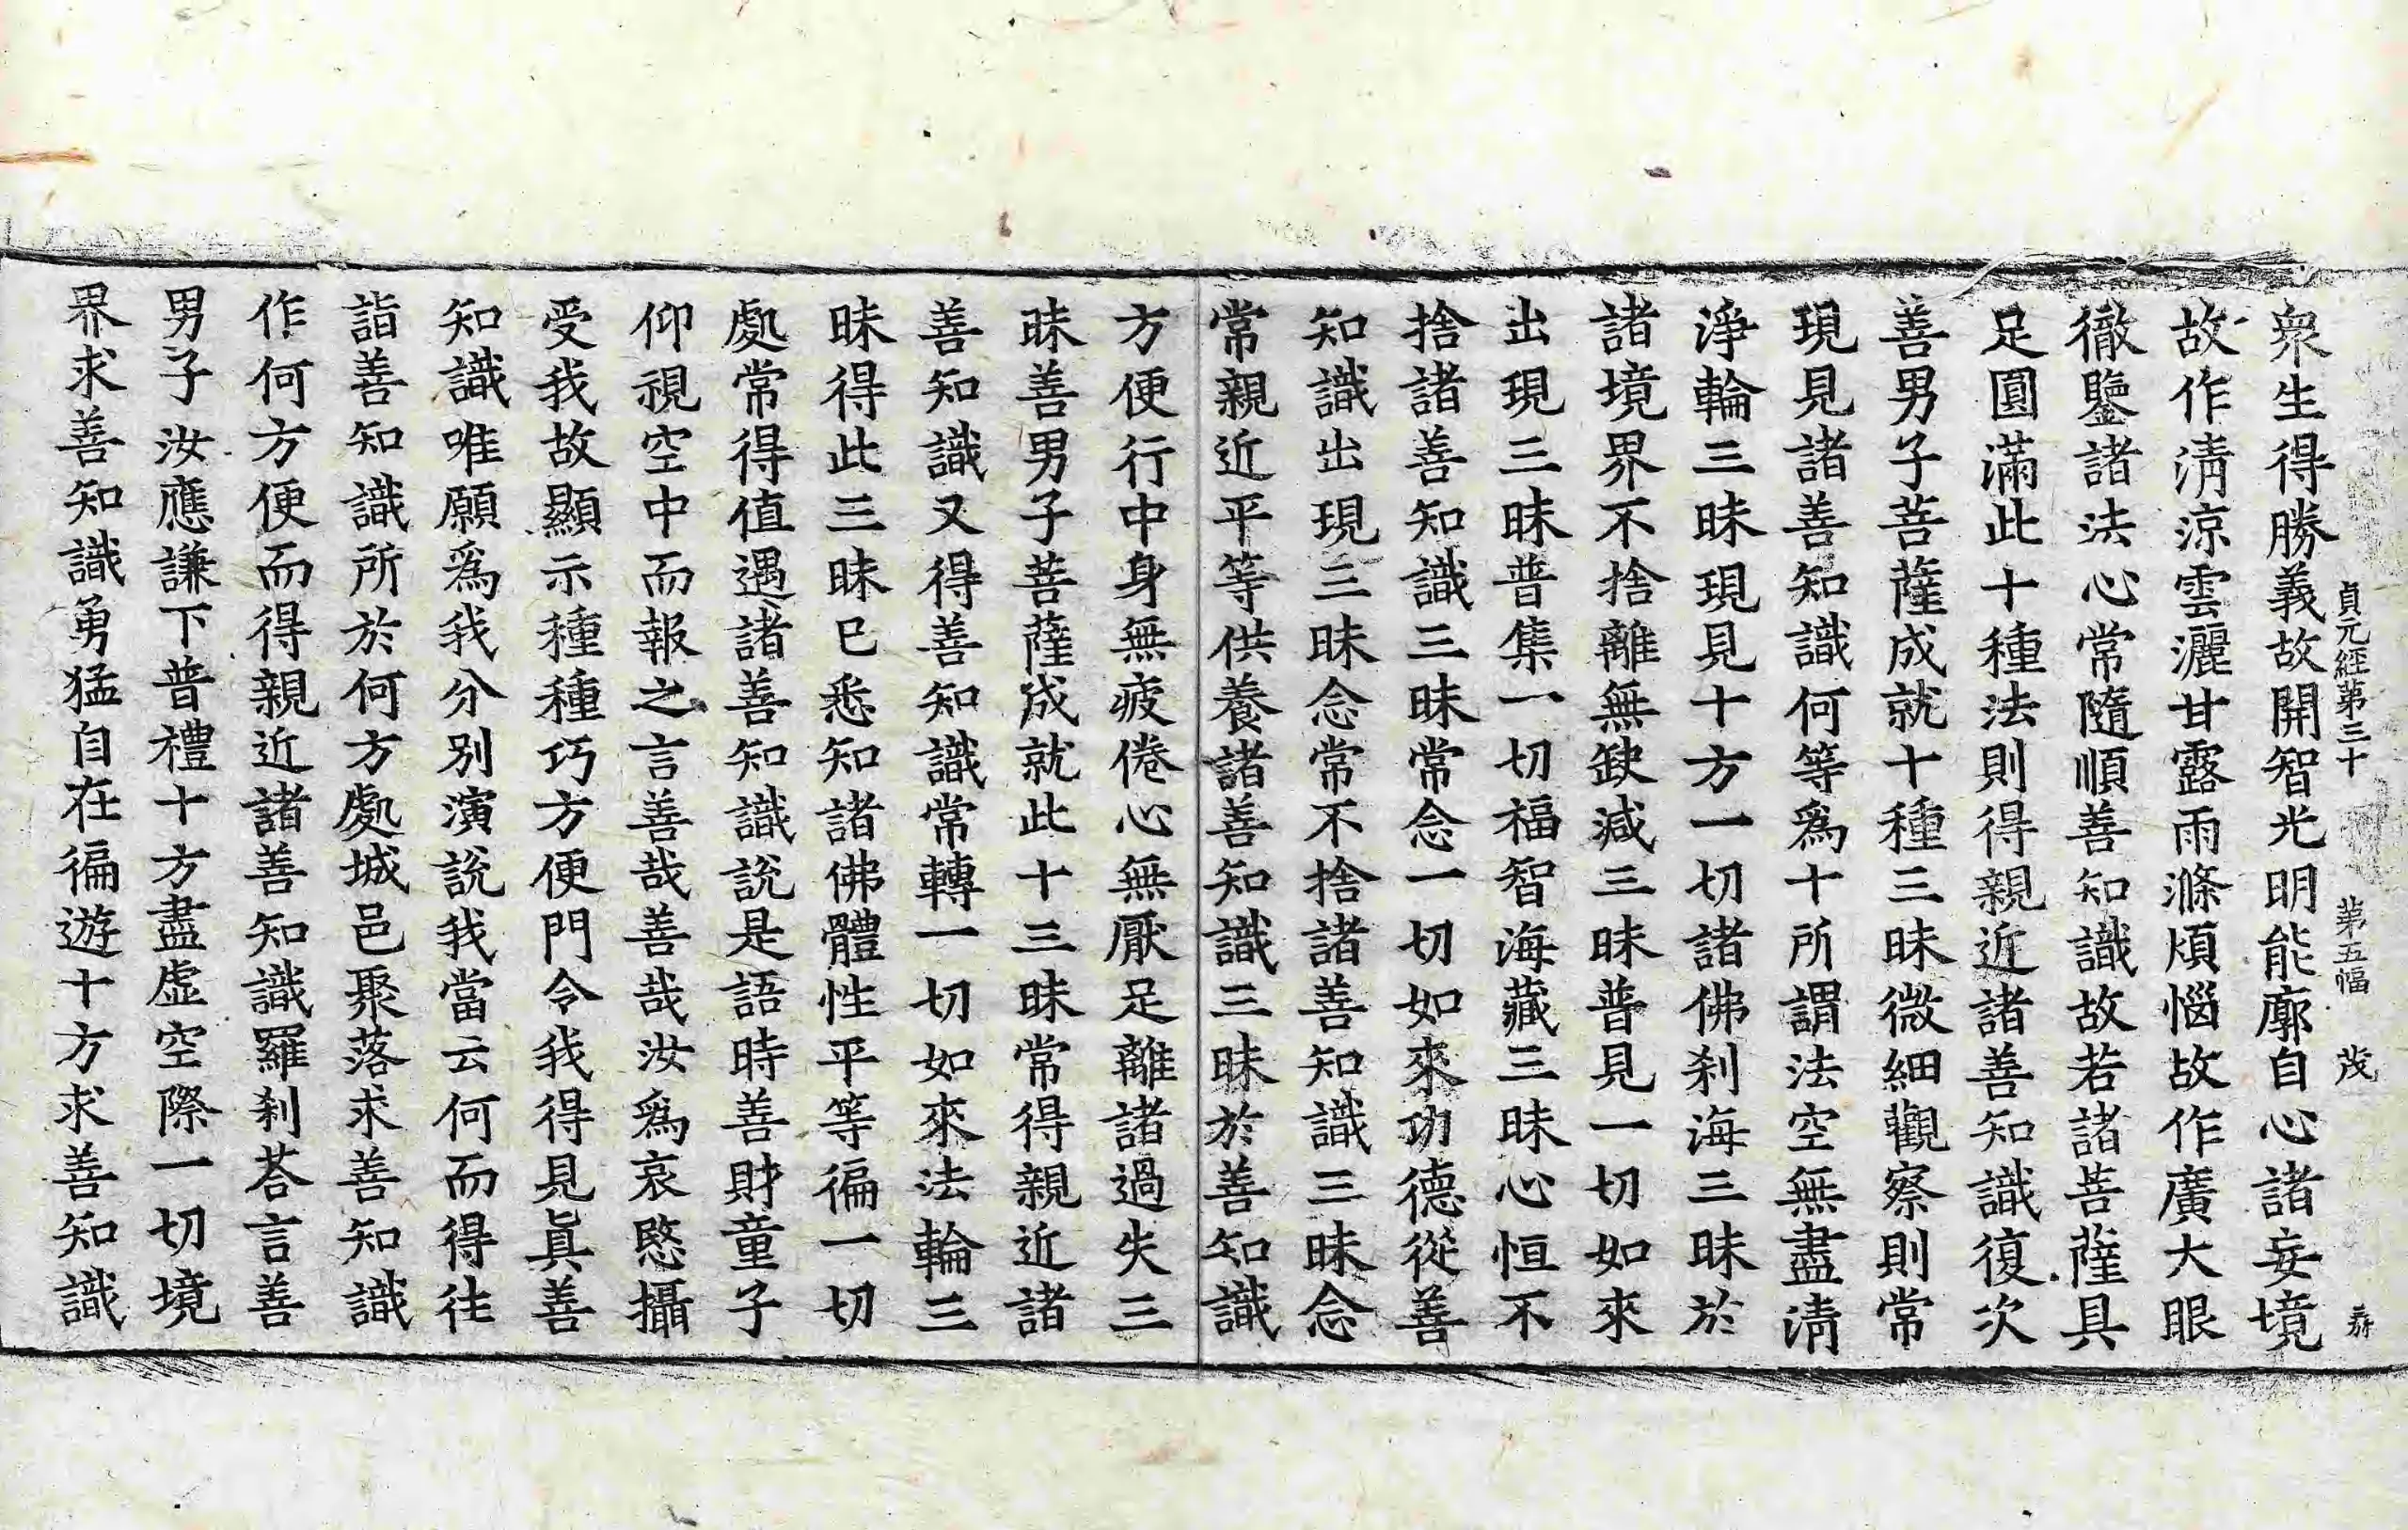 貞元經第三十 第五幅 茂
眾生得勝義故開智光明能廓自心諸妄境
故作淸涼雲灑甘露雨滌煩惱故作廣大眼
徹鑒諸法心常隨順善知識故若諸菩薩具
足圓滿此十種法則得親近諸善知識復次
善男子菩薩成就十種三昧微細觀察則常
現見諸善知識何等爲十所謂法空無盡淸
淨輪三昧現見十方一切諸佛刹海三昧於
諸境界不捨離無缺減三昧普見一切如來
出現三昧普集一切福智海藏三昧心恒不
捨諸善知識三昧常念一切如來功德從善
知識出現三昧念常不捨諸善知識三昧念
常親近平等供養諸善知識三昧於善知識
方便行中身無疲倦心無厭足離諸過失三
昧善男子菩薩成就此十三昧常得親近諸
善知識又得善知識常轉一切如來法輪三
昧得此三昧已悉知諸佛體性平等徧一切
處常得值遇諸善知識說是語時善財童子
仰視空中而報之言善哉善哉汝爲哀愍攝
受我故顯示種種巧方便門令我得見眞善
知識唯願爲我分別演說我當云何而得往
詣善知識所於何方處城邑聚落求善知識
作何方便而得親近諸善知識羅刹荅言善
男子汝應謙下普禮十方盡虛空際一切境
界求善知識勇猛自在徧遊十方求善知識